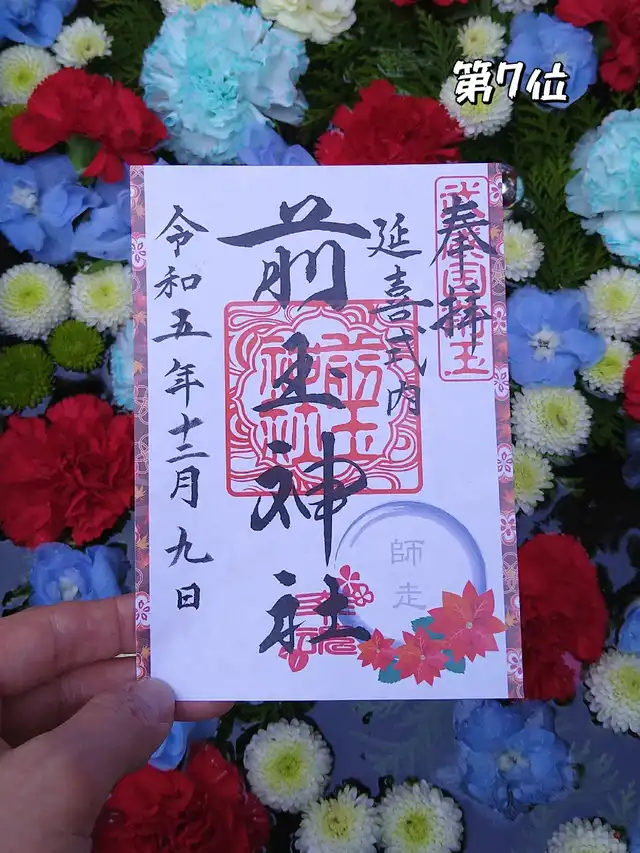 第7位
奉拝
延喜式内
前玉神社
前玉神社
師走
令和五年十二月九日